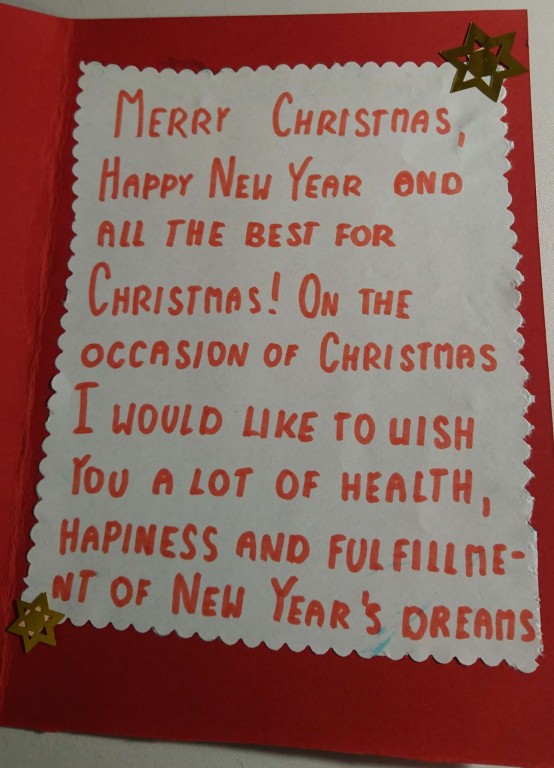 Merry Christmas,
Happy New Year and
all the best for
Christmas! On the
occasion of Christmas
I would like to wish
you a lot of health,
hapiness and fulfillme-
nt of New Year's dreams